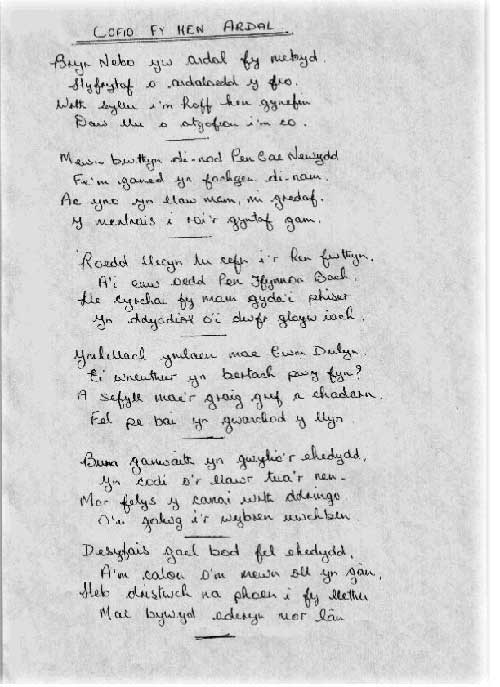 COFIO FY HEN ARDAL.
Bryn Nebo yw ardal fy mebyd.
Hyfrytaf o ardaloedd y fro.
Wrth syllu i'm hoff hen gynefin
Daw llu o atgofion i'm co.
Mewn bwthyn di-nod Pen Cae Newydd
Fe'm ganed yn fachgen di-nam.
Ac yno yn llaw mam, mi gredaf.
Y mentrais i roi'r gyntaf gam.
Roedd llecyn tu cefn i'r hen fwthyn.
A'i enw oedd Pen Ffynnon Bach.
Lle cyrchai fy mam gyda'i phiser
Yn ddyddiol o'i dwfr gloyw iach.
Ymhellach ymlaen mae Cwm Dulyn.
Ei wneuthur yn bertach pwy fyn?
A sefyll mae'r graig gref a chadarn.
Fel pe bai yn gwarchod y llyn.
Bum ganwaith yn gwylio'r ehedydd,
Yn codi o'r llawr tua'r nen.
Mor felys y canai wrth ddringo
O'm golwg i'r wybren uwchben.
Desyfais gael bod fel ehedydd,
A'm calon o'm mewn oll yn gân,
Heb dristwch na phoen i fy llethu
Mae bywyd ederyn mor lân